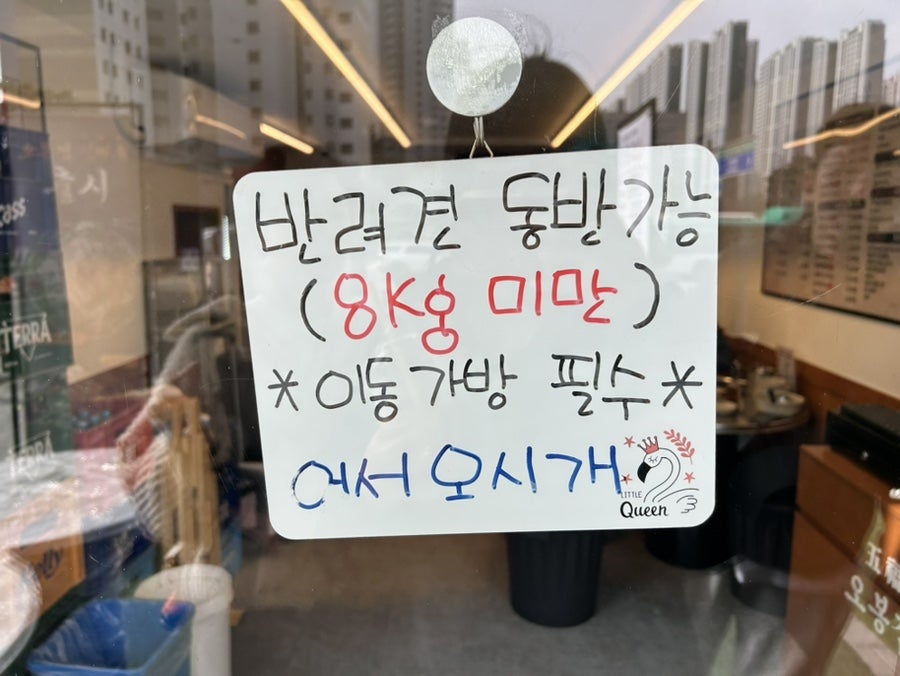 반려견 동반가능
(8Kg 미만)
*이동가방 필수*
어서오시개
LITTLE
Queen
TERRA
TERRA
출시